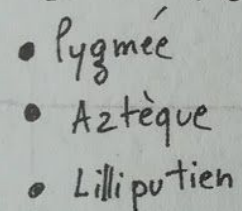 • Pygmée
• Aztèque
• Lilliputien